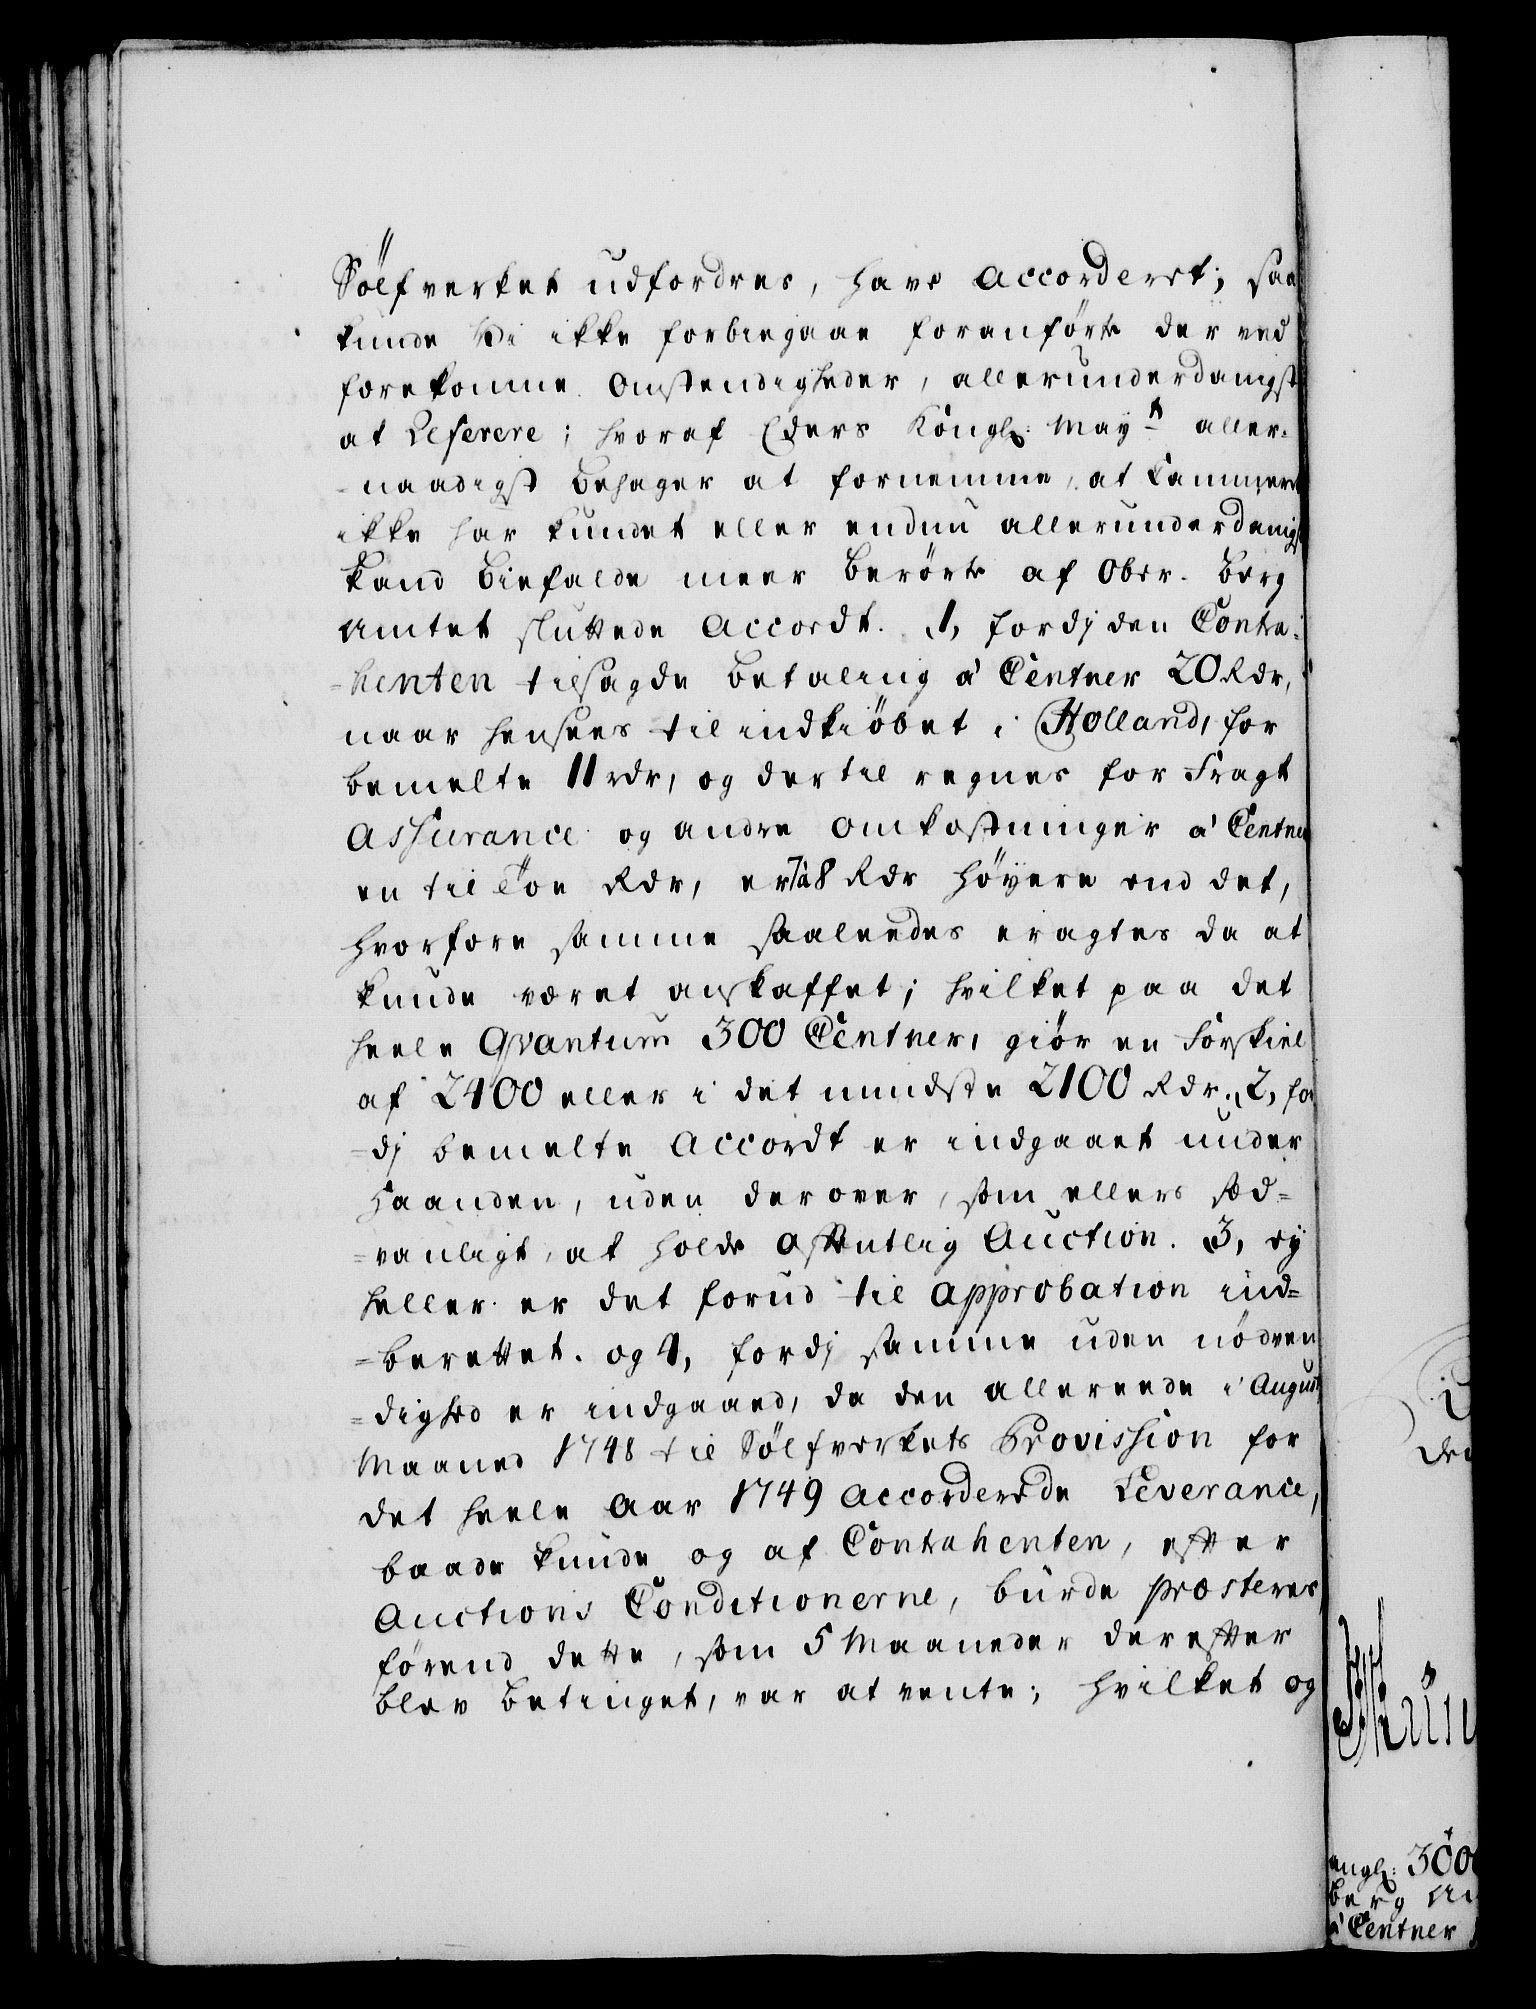 Sölfverket udfordres, have accorderet; saa
kunde Vi ikke forbiegaae foranförte der ved
forekomne omstendigheder, allerunderdanigst
at Referere; hvoraf Eders Kongl: Mayt aller-
-naadigst behager at fornemme, at Cammeret
ikke har kundet eller endnu allerunderdanigst
kand biefalde meer berörte af Ober-Berg
Amtet sluttede Accordt. 1, fordj den Contra-
-henten tilsagde betaling à Centner 20 Rdr,
naar hensees til indkiöbet i Holland, for
bemelte 11 rdr, og dertil regnes for Fragt
Assurance og andre omkostninger à Centner
en til Toe Rdr, er 7 à 8 Rdr höyere end det,
hvorfore samme saaleedes eragtes da at
kunde været anskaffet; hvilket paa det
heele Qvantum 300 Centner, giör en Forskiel
af 2400 eller i det mindste 2100 Rdr. 2, for
-dj bemelte Accordt er indgaaet under
Haanden, uden derover, som ellers sæd=
=vanligt, at holde offentlig Auction. 3, ey
heller er det forud til Approbation ind=
=berettet. og 4, fordj samme uden nödven
=dighed er indgaaed, da den allereede i Augusti
Maaned 1748 til Sölfverkets Provission for
det heele Aar 1749 accorderede Leverance,
baade kunde og af Contrahenten, efter
Auctions Conditionerne, burde præsteres,
förend dette, som 5 Maaneder derefter
blev betinget, var at vente; hvilket og
angl: 300
Berg Am
à Centner